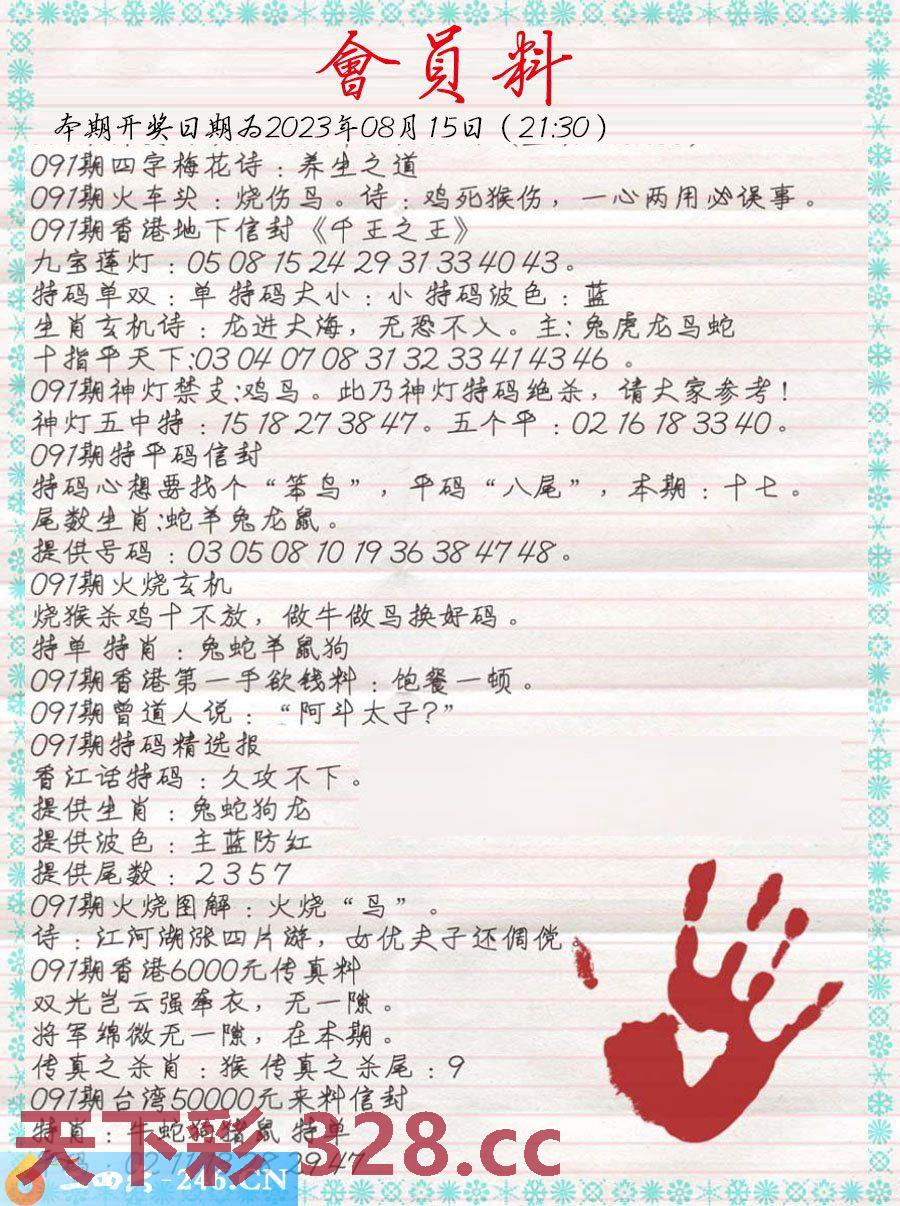 會員料
本期开奖日期为2023年08月15日（21:30）
091期四字梅花诗：养生之道
091期火车头：烧伤鸟。诗：鸡死猴伤，一心两用必误事。
091期香港地下信封《千王之王》
九宝莲灯：05 08 15 24 29 31 33 40 43。
特码单双：单 特码大小：小 特码波色：蓝
生肖玄机诗：龙进大海，无恐不入。主:兔虎龙马蛇
十指平天下:03 04 07 08 31 32 33 41 43 46 。
091期神灯禁支:鸡鸟。此乃神灯特码绝杀，请大家参考！
神灯五中特：15 18 27 38 47。五个平：02 16 18 33 40。
091期特平码信封
特码心想要找个“笨鸟”，平码“八尾”，本期：十七。
尾数生肖:蛇羊兔龙鼠。
提供号码：03 05 08 10 19 36 38 47 48。
091期火烧玄机
烧猴杀鸡十不放，做牛做鸟换好码。
特单 特肖：兔蛇羊鼠狗
091期香港第一手欲钱料：饱餐一顿。
091期曾道人说：“阿斗太子?”
091期特码精选报
香江话特码：久攻不下。
提供生肖：兔蛇狗龙
提供波色：主蓝防红
提供尾数：2 3 5 7
091期火烧图解：火烧“鸟”。
诗：江河湖涨四片游，女优夫子还倜傥。
091期香港6000元传真料
双光岂云强牵衣，无一隙。
将军绵微无一隙，在本期。
传真之杀肖：猴 传真之杀尾：9
091期台湾50000元来料信封
特肖：牛蛇狗猪鼠 特单
29 47
天下彩 328.cc
-246.CN